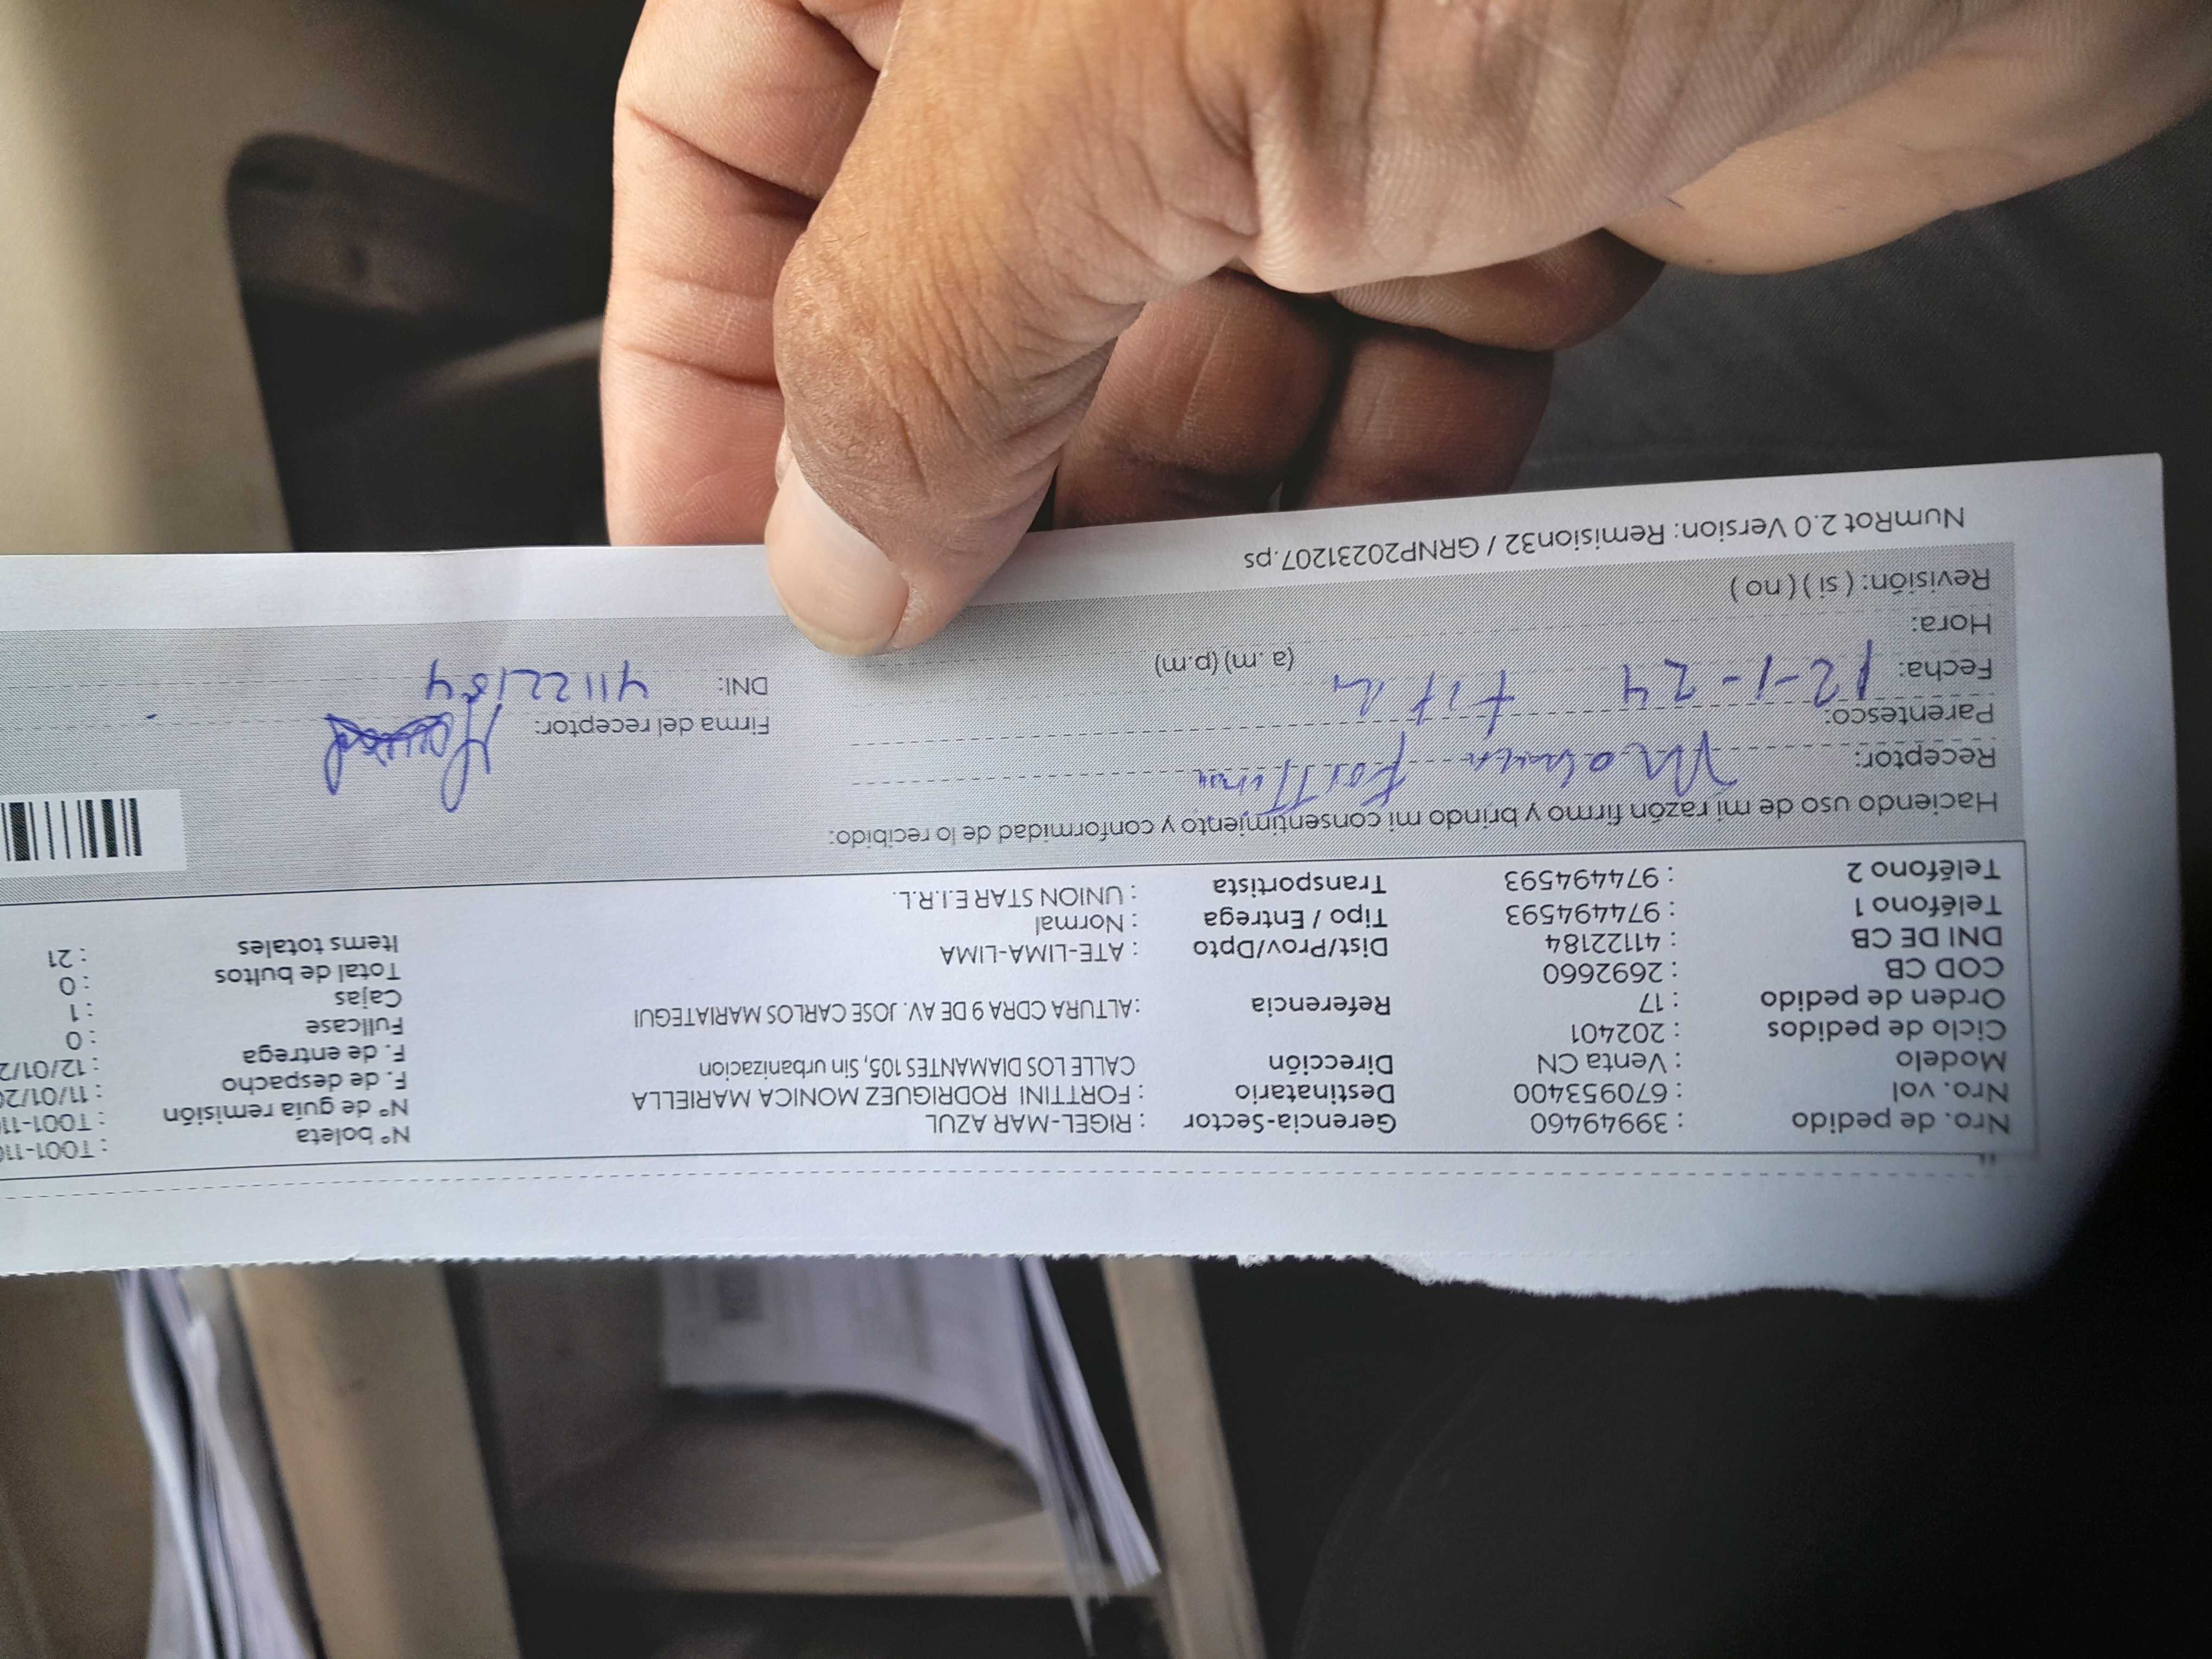 Nro. de pedido : 39949460 Gerencia-Sector : RIGEL-MAR AZUL Nº boleta : T001-11
Nro. vol : 670953400 Destinatario : FORTTINI RODRIGUEZ MONICA MARIELLA Nº de guía remisión : T001-11
Modelo : Venta CN Dirección CALLE LOS DIAMANTES 105, Sin urbanizacion F. de despacho : 11/01/20
Ciclo de pedidos : 202401 F. de entrega : 12/01/2
Orden de pedido : 17 Referencia : ALTURA CDRA 9 DE AV. JOSE CARLOS MARIATEGUI Fullcase : 0
COD CB : 2692660 Cajas : 1
DNI DE CB : 41122184 Dist/Prov/Dpto : ATE-LIMA-LIMA Total de bultos : 0
Teléfono 1 : 974494593 Tipo / Entrega : Normal Items totales : 21
Teléfono 2 : 974494593 Transportista : UNION STAR E.I.R.L.
Haciendo uso de mi razón firmo y brindo mi consentimiento y conformidad de lo recibido:
Receptor:
Parentesco: Firma del receptor:
Fecha: 12-1-24 DNI: 41122184
Hora: (a.m) (p.m)
Revisión: ( si ) ( no )
NumRot 2.0 Version: Remision32 / GRNP20231207.ps